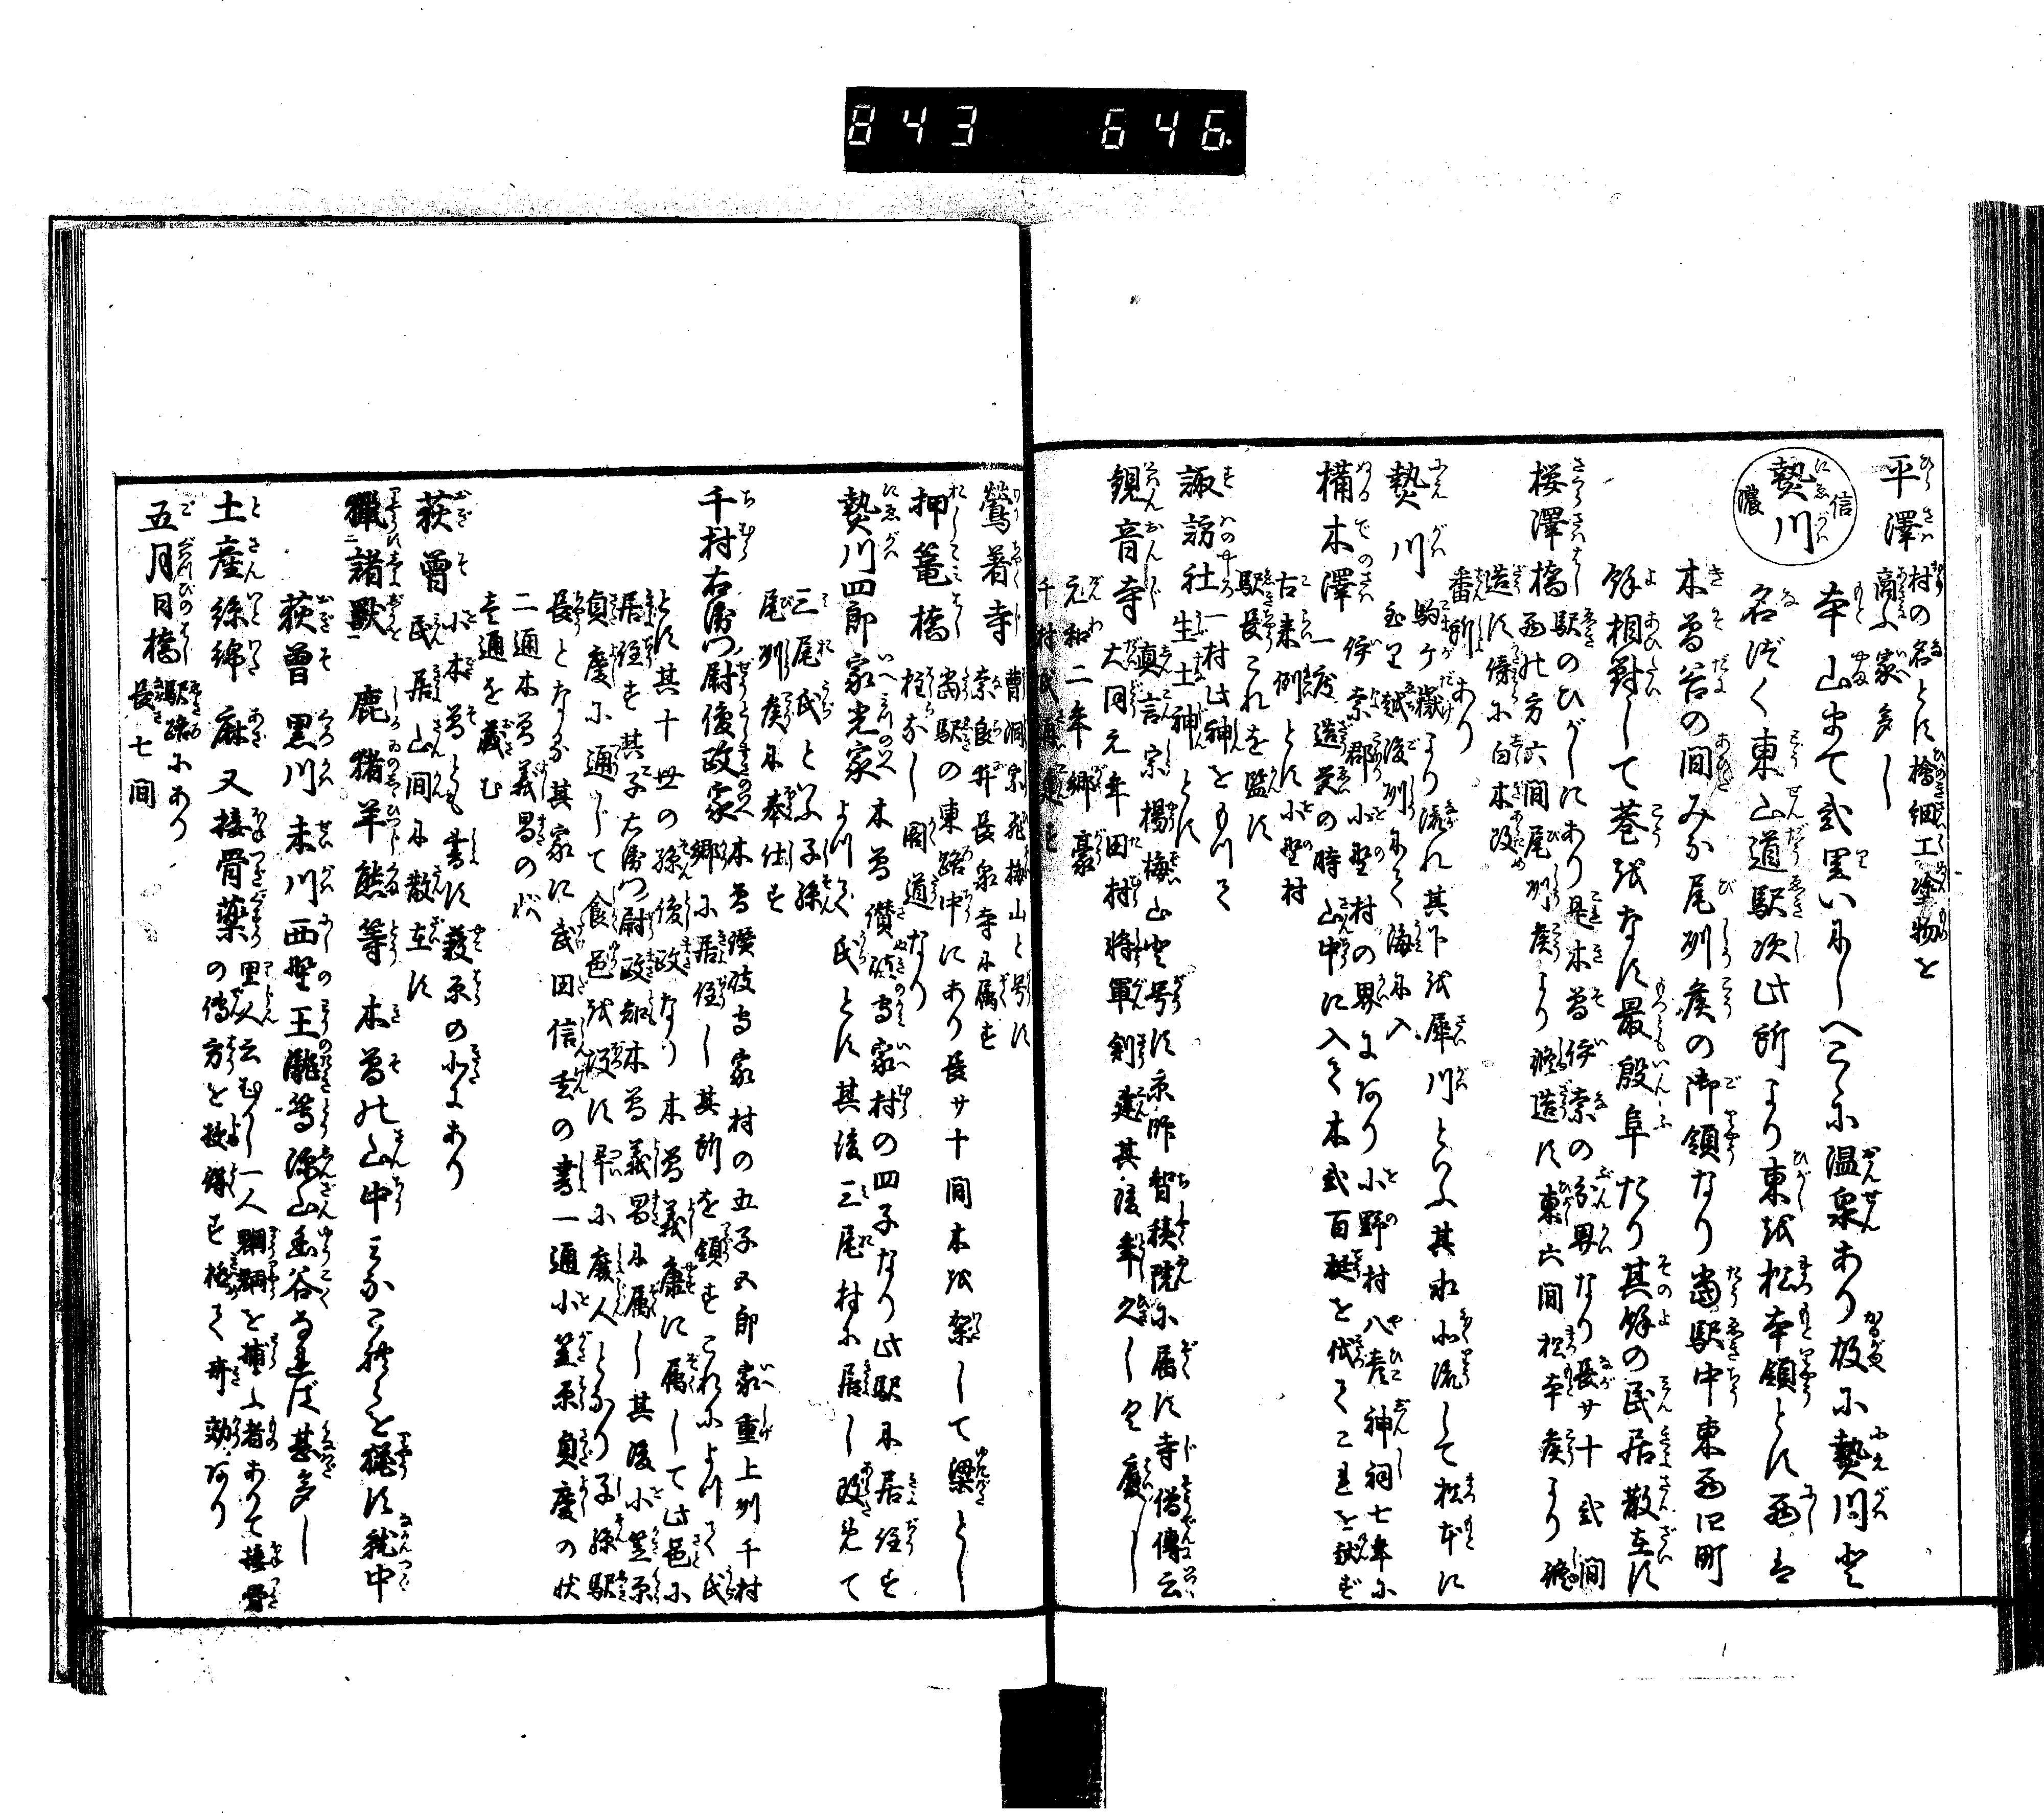 843 646.
平澤 村の名とす檜細工塗物を
高ふ家多し
信濃 贄川 本山まで弐里いにしへこゝに温泉あり故に贄川と
名づく東山道駅次此所より東を松本領とす西は
木曽谷の間みな尾州侯の御領なり當駅中東西四町
餘相對して巷をなす最殷阜たり其餘の民居散在す
桜澤橋 駅のひがしにあり是木曽伊奈の分界なり長サ十弐間
西の方六間尾州侯より修造す東六間松本侯より修
造す傍に白木改
番所あり
贄川 駒ケ嶽より流れ其下を犀川といふ其水北流して松本に
至り越後州にて海に入
橳木澤 伊奈郡小野村の界にあり小野村八彦神祠七年に
一度造営の時山中に入て木弐百挺を伐てこれを献ず
古来例とす小野村
駅長これを監す
諏訪社 一村此神をもつて
生土神とす
観音寺 真言宗楊梅山と号す京師智積院に属す寺僧傳云
大同元年田村将軍創建其後年久しく廃し
元和二年郷豪
千村氏再建す
鶯着寺 曹洞宗飛梅山と号す
奈良井長泉寺に属す
押篭橋 當駅の東路中にあり長サ十間木を架して梁とし
柱なし閣道なり
贄川四郎家光家 木曽讃岐守家村の四子なり此駅に居住す
よつて氏とす其後三尾村に居し改めて
三尾氏といふ子孫
尾州侯に奉仕す
千村右衛門尉俊政家 木曽讃岐守家村の五子五郎家重上州千村
郷に居住し其所を領すこれによつて氏
とす其十世の孫俊政なり木曽義康に属して此邑に
居住す其子右衛門尉政知木曽義昌に属し其後小笠原
貞慶に通じて食邑を没す卑に廃人となり子孫駅
長となる其家に武田信玄の書一通小笠原貞慶の状
二通木曽義昌の状
壱通を蔵む
荻曽 小木曽とも書す藪原の北にあり
民居山間に散在す
猟諸獣 鹿猪羊熊等木曽の山中みなこれを猟す就中
荻曽黒川末川西野王瀧等深山幽谷なれば甚多し
土産 絲綿麻又接骨薬の傳方を救得す極て奇効あり
里人云むかし一人𩵋𩵋を捕ふ者ありて接骨
五月日橋 駅路にあり
長七間